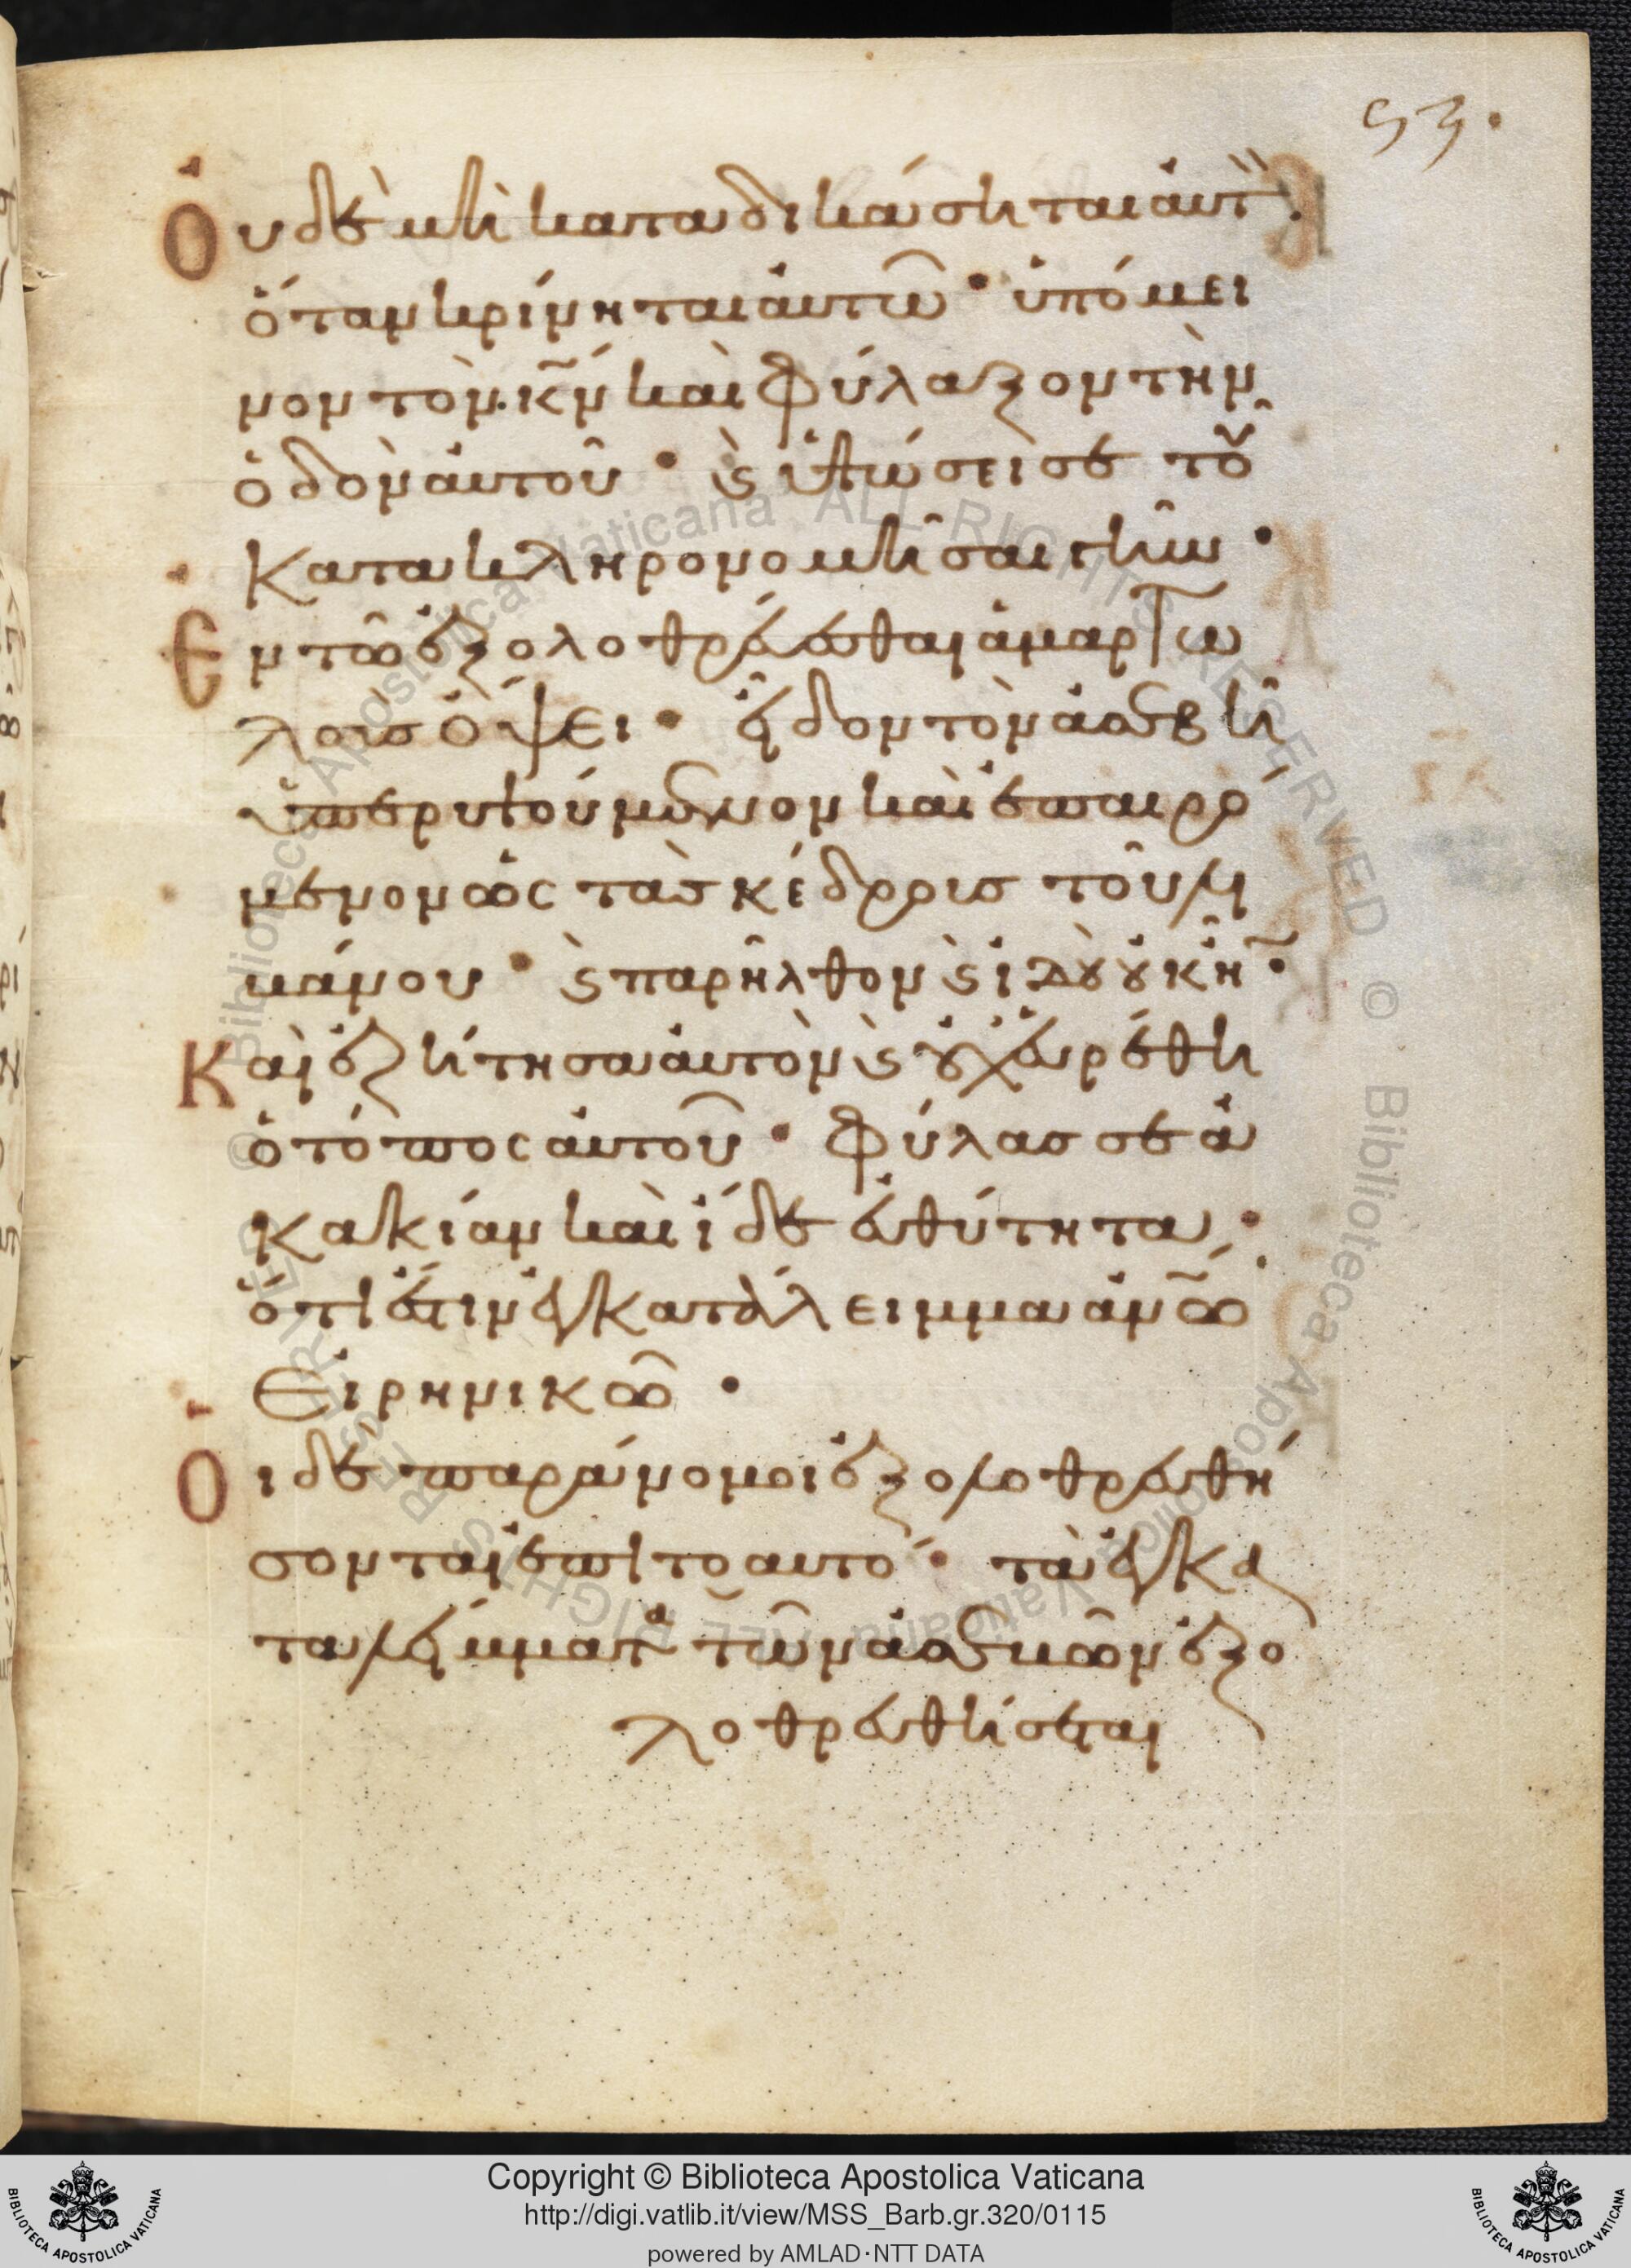 53.
Ουδὲ μὴ καταδικάσηται αὐτ̏.
ὅταν κρίνηται αὐτῶ· ὑπόμει
νον τὸν κ̅ν̅ καὶ φύλαξον τὴν
ὁδὸν αὐτοῦ· ϗ ὑψώσει σε τοῦ
κατακληρονομῆσαι γῆν·
Ἐν τῶ ἐξολοθρεύεσθαι ἁμαρτω
λοὺς ὄψει· εἶδον τὸν ἀσεβῆ
ὑπερυψούμενον καὶ ἐπαιρό
μενον ὡς τὰς κέδρους τοῦ λι
βάνου· ϗ παρῆλθον ϗ ἰδοὺ οὐκ ἦ̅·
Καὶ ἐζήτησα αὐτὸν ϗ οὐχ εὑρέθη
ὁ τόπος αὐτοῦ· φύλασσε ἀ
κακίαν καὶ ἴδε εὐθύτητα·
ὅτι ἔστιν ἐγκατάλειμμα ἀν̅ω̅
εἰρηνικῶ·
Οἱ δὲ παράνομοι ἐξολοθρευθή
σονται ἐπιτοαυτό· τὰ ἐγκα
ταλείμματα τῶν ἀσεβῶν ἐξο
λοθρευθήσεται
Copyright © Biblioteca Apostolica Vaticana
http://digi.vatlib.it/view/MSS_Barb.gr.320/0115
powered by AMLAD·NTT DATA
BIBLIOTECA APOSTOLICA VATICANA
BIBLIOTECA APOSTOLICA VATICANA